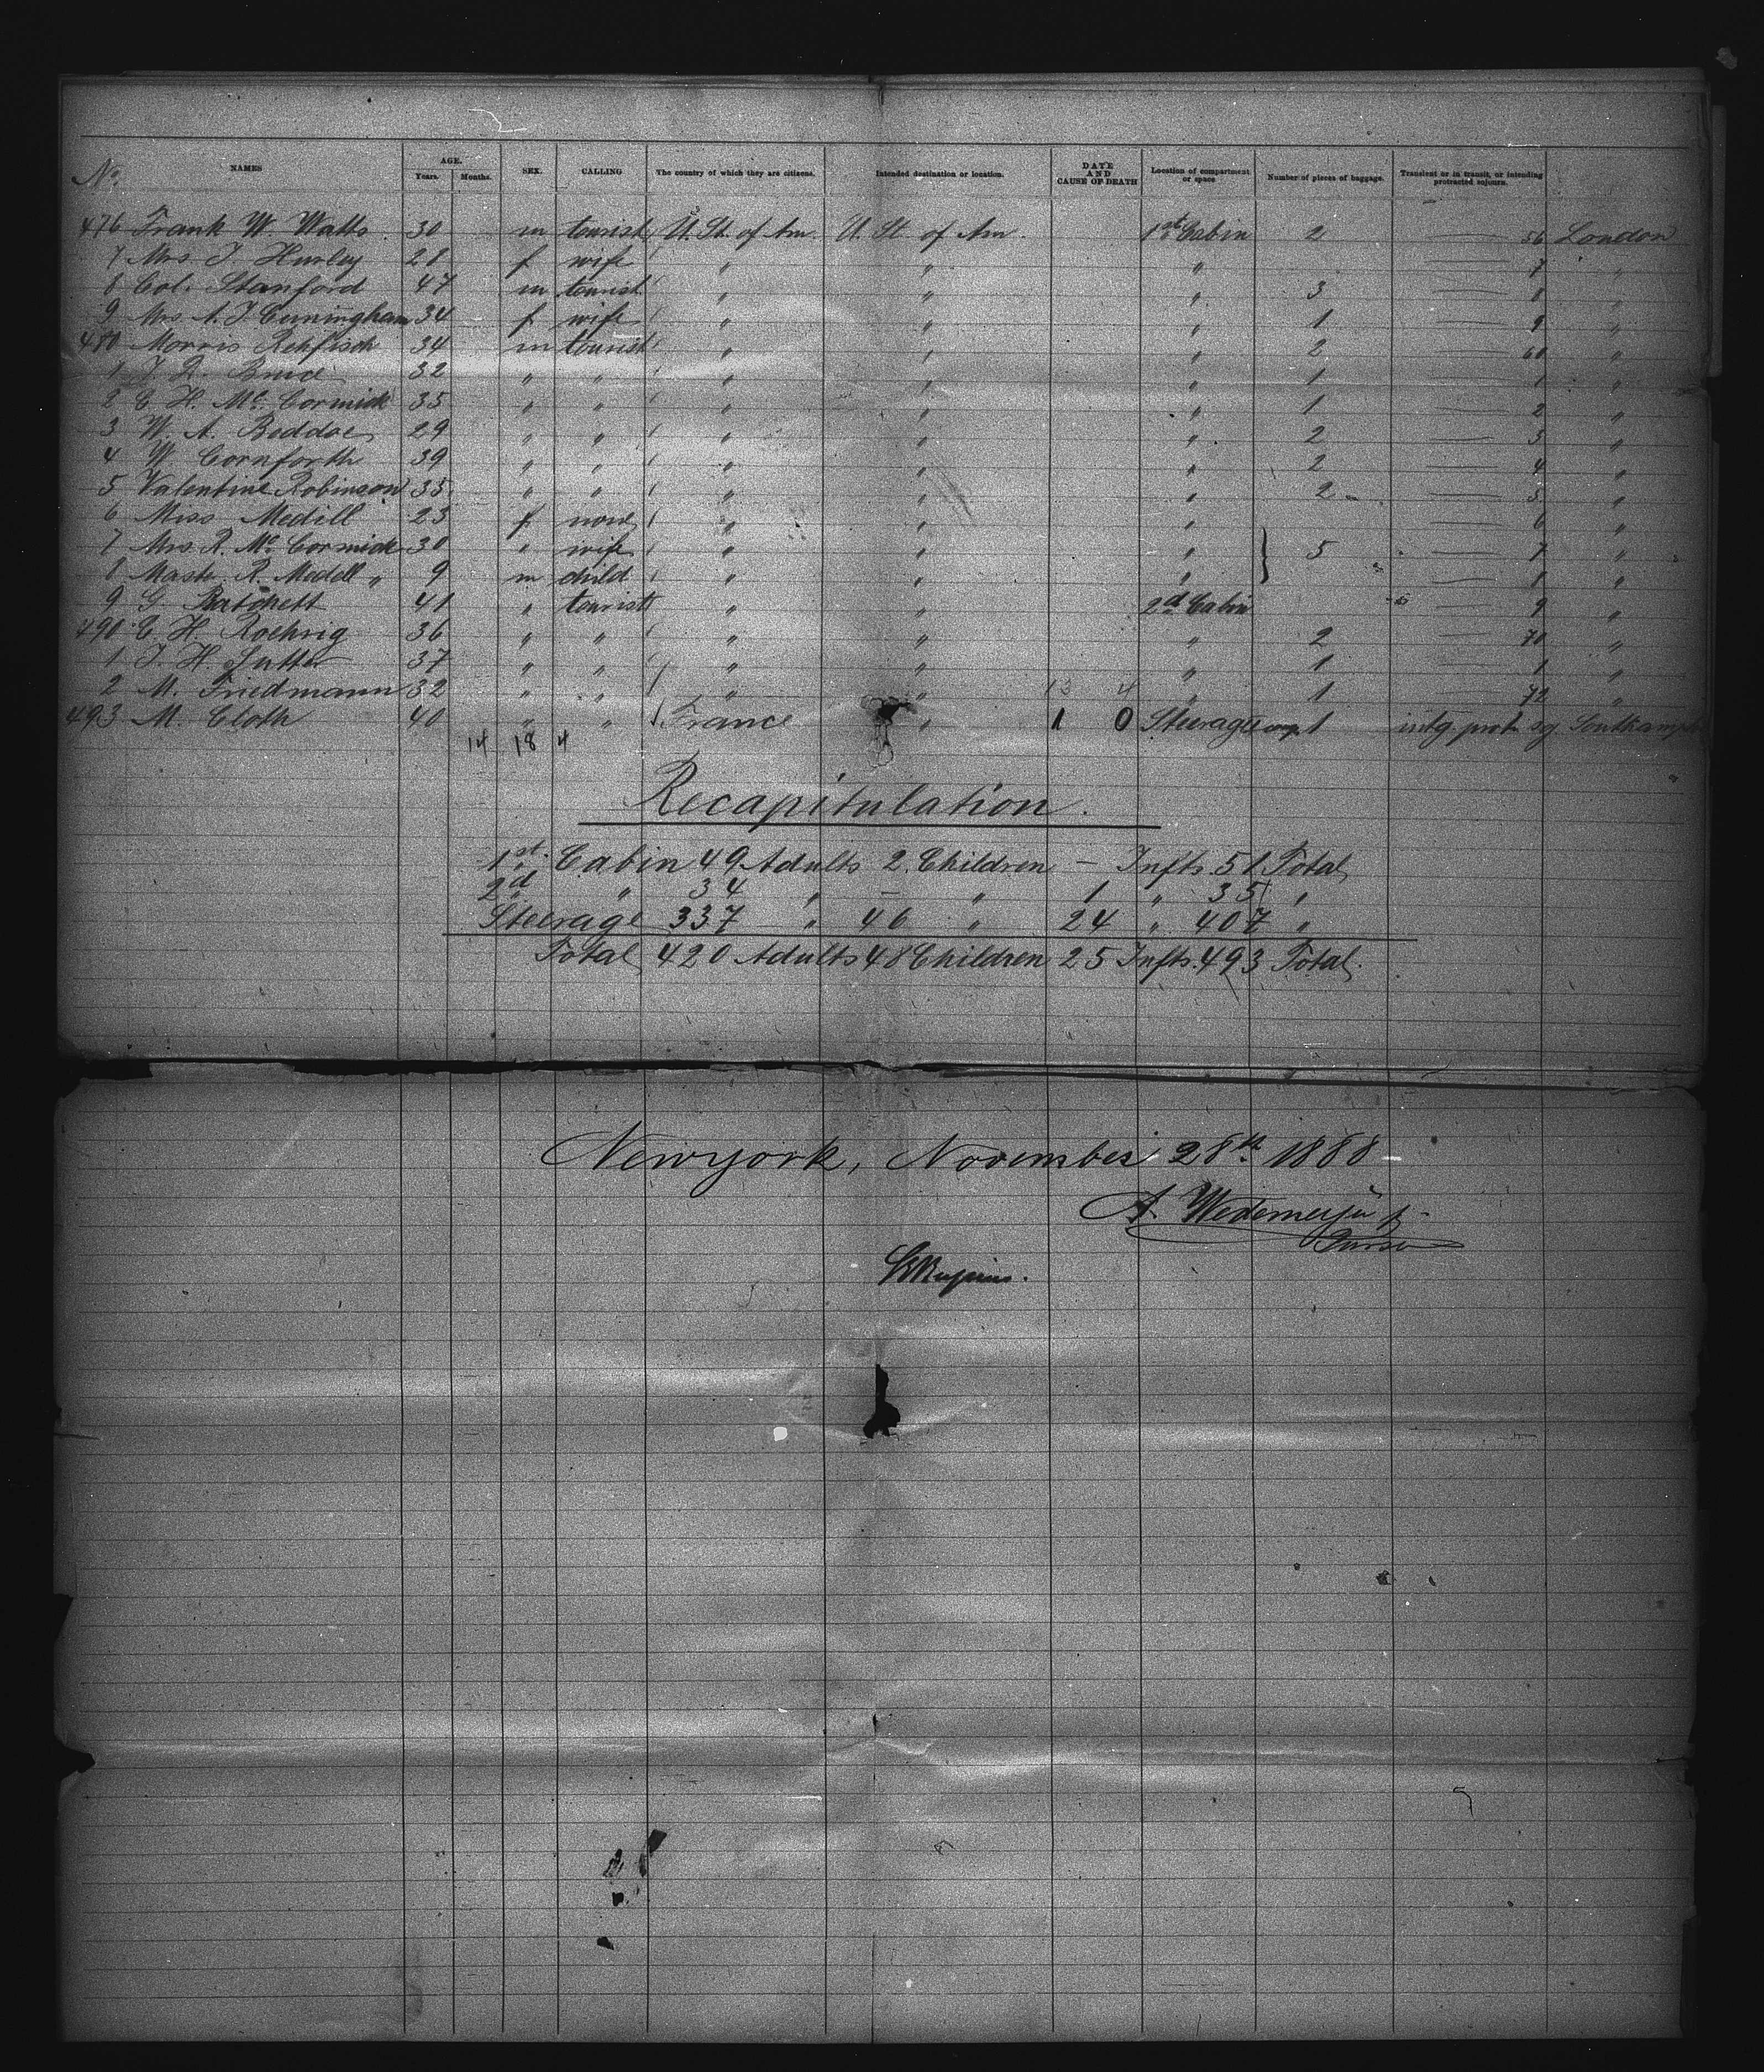 No. NAMES AGE. Years. Months. SEX. CALLING The country of which they are citizens. Intended destination or location. DATE AND CAUSE OF DEATH Location of compartment or space Number of pieces of baggage. Transient or in transit, or intending protracted sojourn.
476 Frank W. Watts 30 m tourist U. St. of Am. U. St. of Am. 1st Cabin 2 56 London
7 Mrs. J. Hurley 28 f wife " " " 7 "
8 Col. Stanford 47 m tourist " " " 3 8 "
9 Mrs. A. J. Cuningham 34 f wife " " " 1 9 "
480 Morris Rehfisch 34 m tourist " " " 2 60 "
1 Bruce 32 " " " " " 1 1 "
2 C. H. Mc. Cormick 35 " " " " " 1 2 "
3 W. A. Beddoe 29 " " " " " 2 3 "
4 W. Cornforth 39 " " " " " 2 4 "
5 Valentine Robinson 35 " " " " " 2 5 "
6 Miss Medill 23 f none " " " 6 "
7 Mrs. R. Mc. Cormick 30 " wife " " " 5 7 "
8 Mastr. R. Medell " 9 m child " " " "
9 G. Ratchett 41 " tourist " " 2d Cabin 9 "
490 C. H. Roehrig 36 " " " " " 2 70 "
1 J. H. Sutter 37 " " " " " 1 1 "
2 M. Friedmann 32 " " " " " 1 72 "
493 M. Cloth 40 " " France " 1 0 Steerage 1 intg. prot. sg. Southampt
14 18 4
Recapitulation.
1st. Cabin 49 Adults 2 Children — Infts. 51 Total
2d " 34 " — " 1 " 35 "
Steerage 337 " 46 " 24 " 407 "
Total 420 Adults 48 Children 25 Infts. 493 Total.
Newyork, November 28th 1888
A. Wedemeyer
Purser